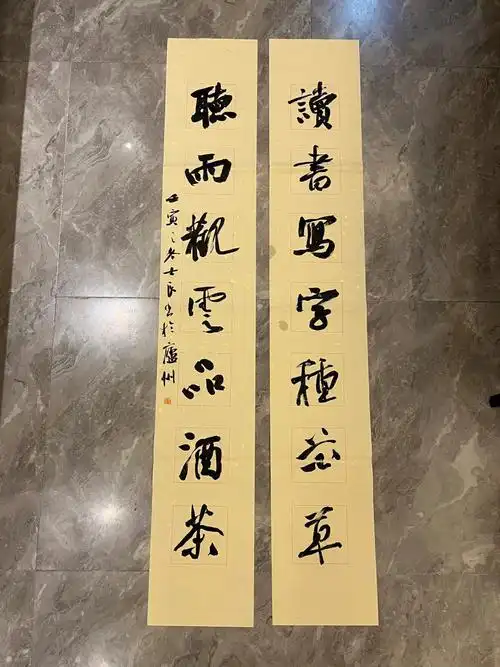 讀書寫字種花草
聽雨觀雲品酒茶
壬寅之冬士良書於廬州